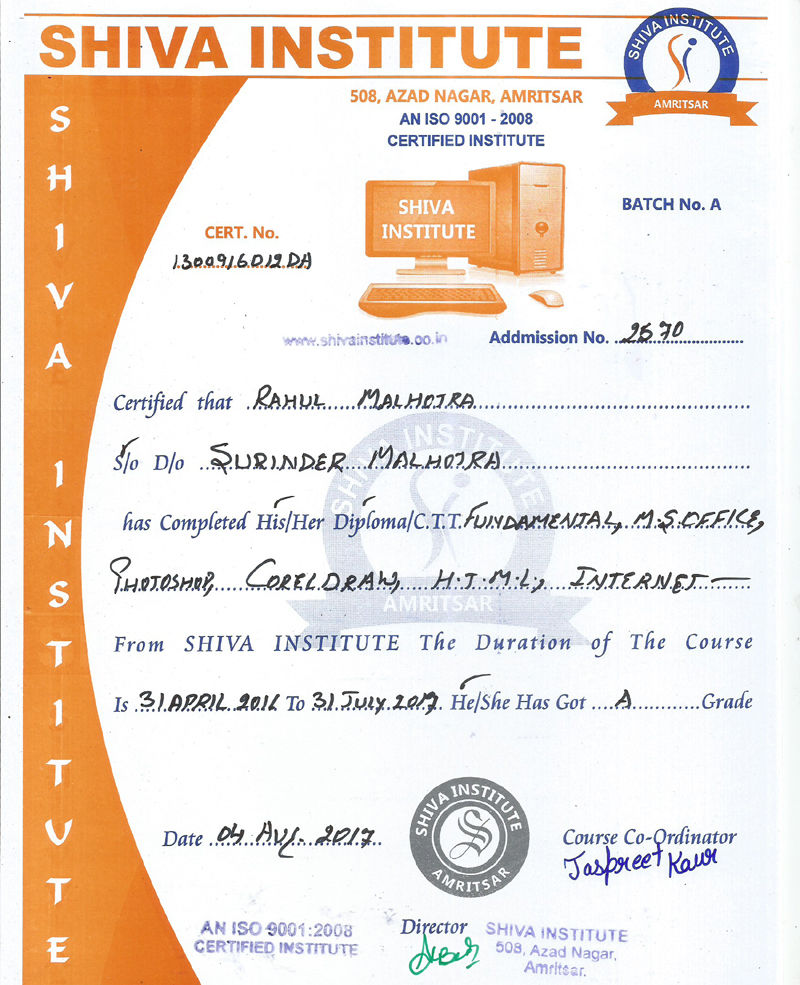 SHIVA INSTITUTE
SHIVA INSTITUTE
AMRITSAR
508, AZAD NAGAR, AMRITSAR
AN ISO 9001 - 2008
CERTIFIED INSTITUTE
SHIVA INSTITUTE
SHIVA
INSTITUTE
BATCH No. A
CERT. No.
1300916D12DA
www.shivainstitute.co.in
Addmission No. 2570
Certified that RAHUL MALHOTRA
S/o D/o SURINDER MALHOTRA
has Completed His/Her Diploma/C.T.T. FUNDAMENTAL, M.S.OFFICE,
PHOTOSHOP, CORELDRAW, H.T.M.L., INTERNET
SHIVA INSTITUTE
AMRITSAR
From SHIVA INSTITUTE The Duration of The Course
Is 31 APRIL 2016 To 31 JULY 2017 He/She Has Got A Grade
Date 04 AUG. 2017
SHIVA INSTITUTE
S
AMRITSAR
Course Co-Ordinator
Jaspreet Kaur
AN ISO 9001:2008
CERTIFIED INSTITUTE
Director
SHIVA INSTITUTE
508, Azad Nagar,
Amritsar.